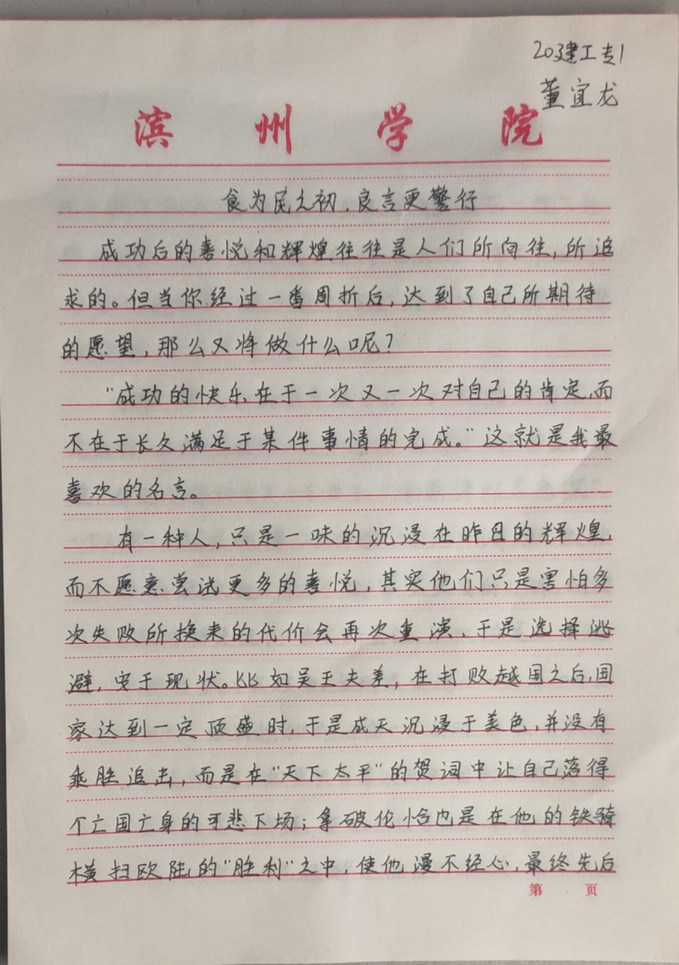 20建工专1
董宜龙
滨州学院
食为民之初，良言更警行
成功后的喜悦和辉煌往往是人们所向往，所追
求的。但当你经过一番周折后，达到了自己所期待
的愿望，那么又将做什么呢？
“成功的快乐在于一次又一次对自己的肯定，而
不在于长久满足于某件事情的完成。”这就是我最
喜欢的名言。
有一种人，只是一味的沉浸在昨日的辉煌，
而不愿意尝试更多的喜悦，其实他们只是害怕多
次失败所换来的代价会再次重演，于是选择逃
避，安于现状。比如吴王夫差，在打败越国之后，国
家达到一定顶盛时，于是成天沉浸于美色，并没有
乘胜追击，而是在“天下太平”的贺词中让自己落得
个亡国亡身的可悲下场；拿破伦恰也是在他的铁骑
横扫欧陆的“胜利”之中，使他漫不经心，最终先后
第 页